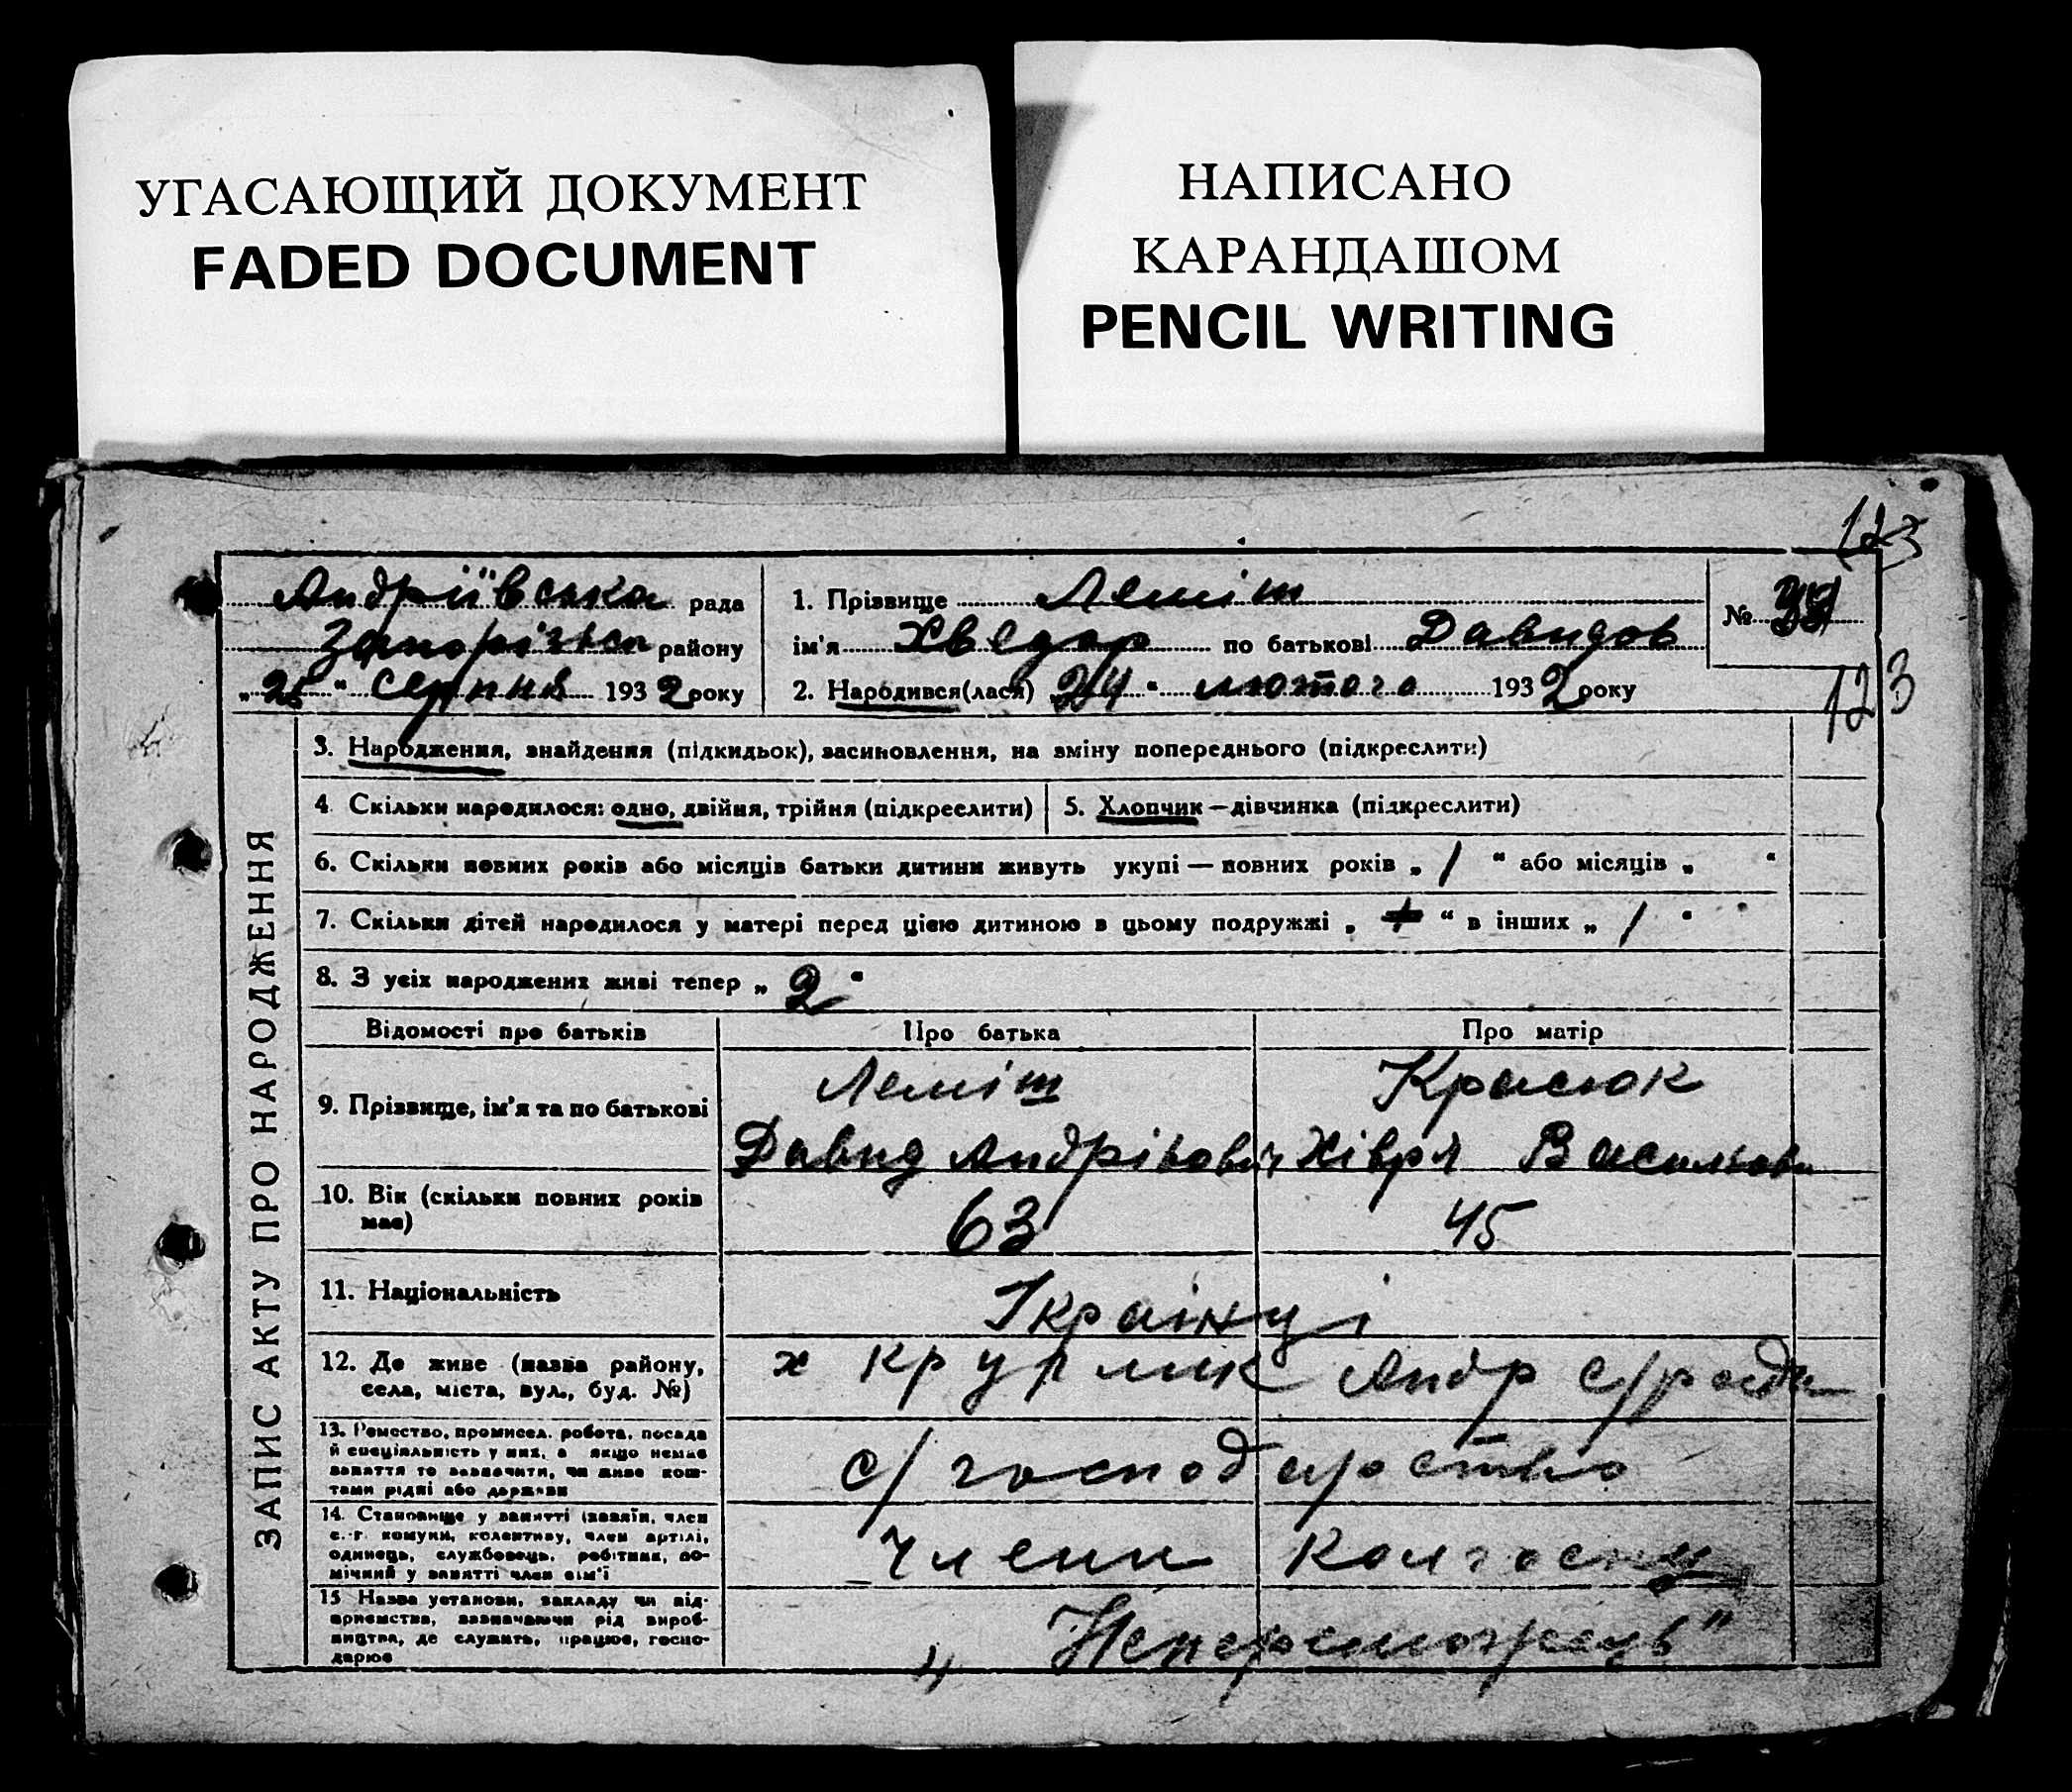 УГАСАЮЩИЙ ДОКУМЕНТ
FADED DOCUMENT
НАПИСАНО
КАРАНДАШОМ
PENCIL WRITING
123
Андріївська рада
Запорізьк району
„ 25 “ серпня 1932 року
1. Прізвище Леміш
ім'я Хведор по батькові Давидов
№
2. Народився(лася) 24 “ лютого 1932 року
123
ЗАПИС АКТУ ПРО НАРОДЖЕННЯ
3. Народження, знайдення (підкидьок), засиновлення, на зміну попереднього (підкреслити)
4. Скільки народилося: одно, двійня, трійня (підкреслити)
5. Хлопчик — дівчинка (підкреслити)
6. Скільки повних років або місяців батьки дитини живуть укупі — повних років „ 1 “ або місяців „ “
7. Скільки дітей народилося у матері перед цією дитиною в цьому подружжі „ “ в інших „ 1 “
8. З усіх народжених живі тепер „ 2 “
Відомості про батьків
Про батька
Про матір
9. Прізвище, ім'я та по батькові
Леміш
Давид Андрівович
Красюк
Хівря Васильовн
10. Вік (скільки повних років
має)
63
45
11. Національність
Українці
12. Де живе (назва району,
села, міста, вул., буд. №)
х Круглик Андр с/рада
13. Ремество, промисел, робота, посада
й спеціяльність у них, а якщо немає
заняття то зазначити, чи живе кош-
тами рідні або держави
с/господарство
14. Становище у занятті (хазяїн, член
с.-г. комуни, колективу, член артілі,
одинець, службовець, робітник, по-
мічний у занятті член сім'ї
Члени Колгоспу
15 Назва установи, закладу чи під-
приємства, зазначаючи рід вироб-
ництва, де служить, працює, госпо-
дарює
„ Непереможець"